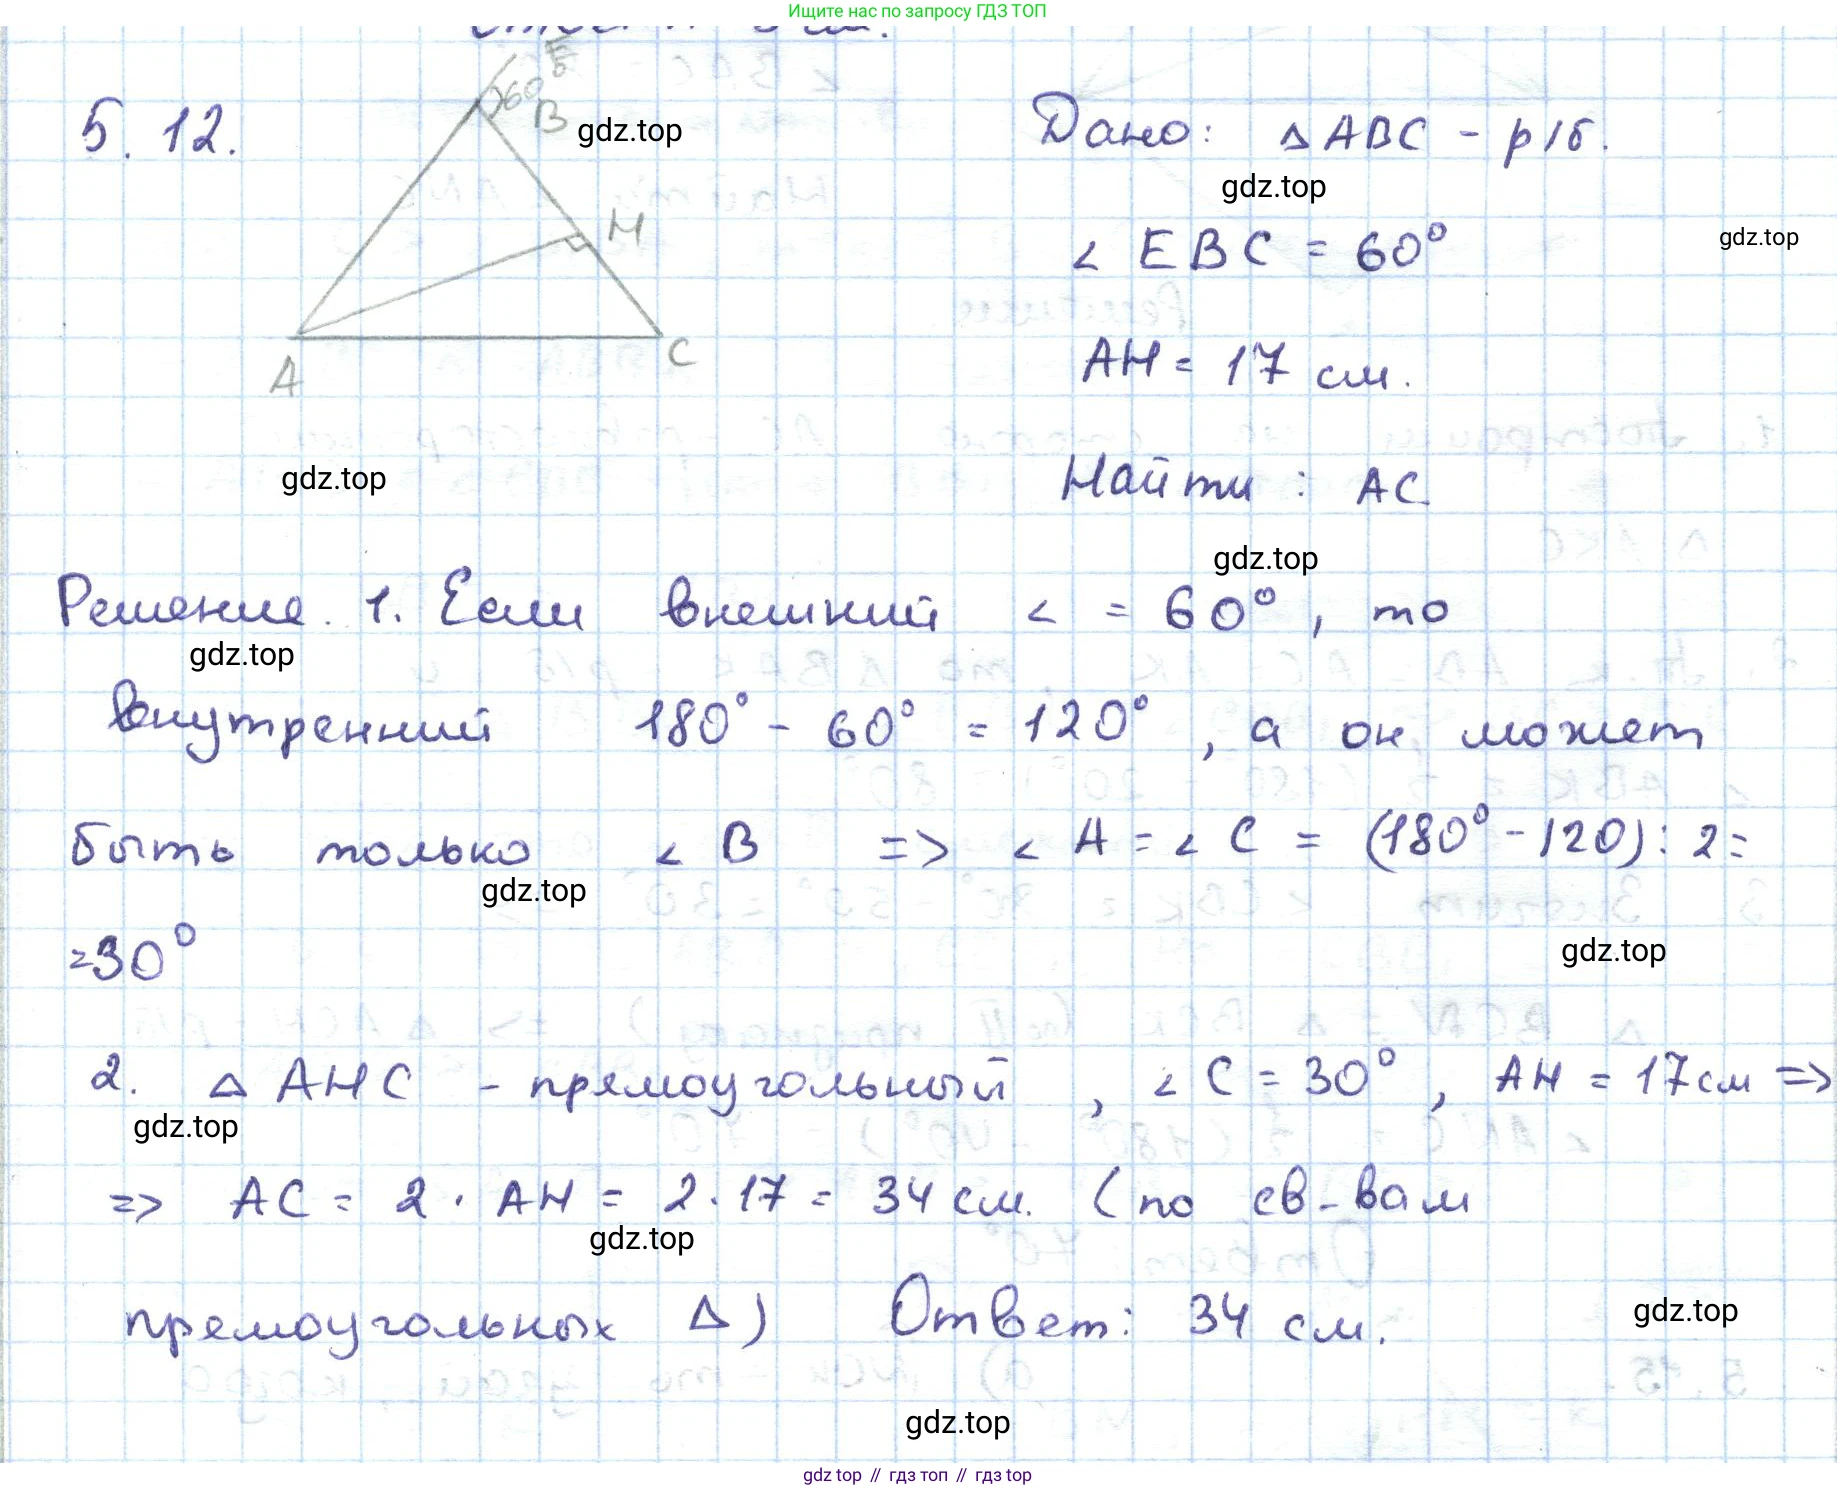 Ищите нас по запросу ГДЗ ТОП
5.12.
E
60°
B
gdz.top
H
A
C
Дано: △ ABC - р/б.
gdz.top
∠ EBC = 60°
gdz.top
AH = 17 см.
gdz.top
Найти: AC
gdz.top
Решение. 1. Если внешний ∠ = 60°, то
gdz.top
внутренний 180° - 60° = 120°, а он может
быть только ∠ B => ∠ A = ∠ C = (180° - 120) : 2 =
gdz.top
= 30°
gdz.top
2. △ AHC - прямоугольный, ∠ C = 30°, AH = 17 см =>
gdz.top
=> AC = 2 · AH = 2 · 17 = 34 см. (по св-вам
gdz.top
прямоугольных △) Ответ: 34 см.
gdz.top
gdz.top
gdz top // гдз топ // гдз top